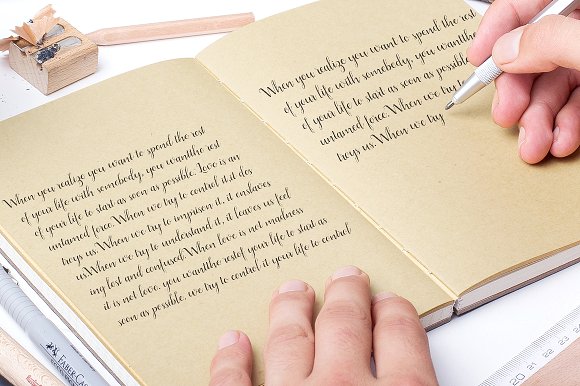 When you realize you want to spend the rest
of your life with somebody, you wantthe rest
of your life to start as soon as possible. Love is an
untamed force. When we try to control it,it des
troys us. When we try to imprison it, it enslaves
us.When we try to understand it, it leaves us feel
ing lost and confused.When love is not madness
it is not love. you wantthe restof your life to start as
soon as possible. we try to control it your life to control
When you realize you want to spend the rest
of your life with somebody, you wantthe
of your life to start as soon as possible
untamed force. When we try to
troys us. When we try
FABER-CAS